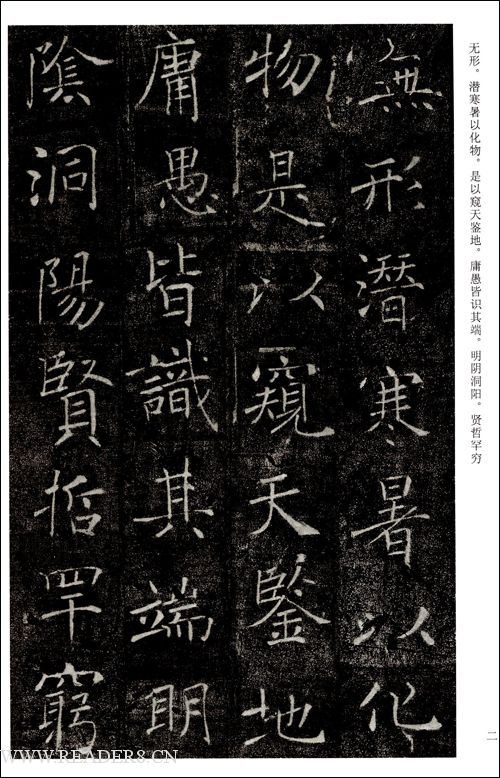 无形。潜寒暑以化物。是以窥天鉴地。庸愚皆识其端。明阴洞阳。贤哲罕穷
無形潛寒暑以化
物是以窺天鑒地
庸愚皆識其端明
陰洞陽賢哲罕窮
二
WWW.READER8.CN